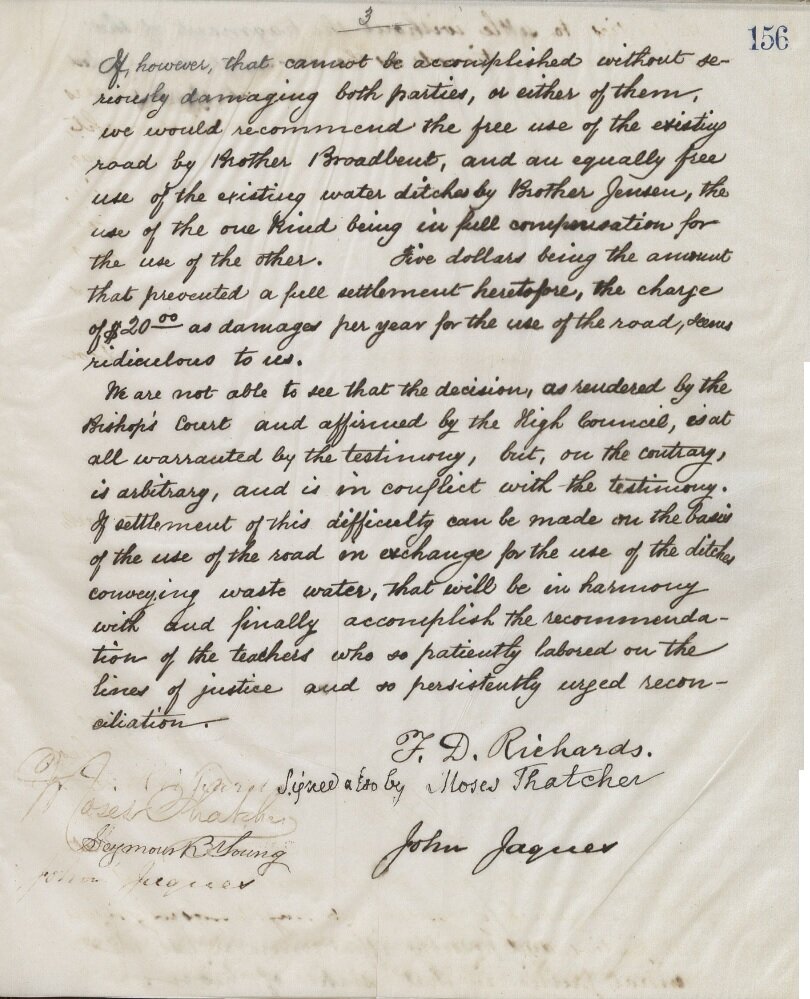 3
156
If, however, that cannot be accomplished without se-
riously damaging both parties, or either of them,
we would recommend the free use of the existing
road by Brother Broadbent, and an equally free
use of the existing water ditches by Brother Jensen, the
use of the one kind being in full compensation for
the use of the other. Five dollars being the amount
that prevented a full settlement heretofore, the charge
of $20 00 as damages per year for the use of the road, seems
ridiculous to us.
We are not able to see that the decision, as rendered by the
Bishop's Court and affirmed by the High Council, is at
all warranted by the testimony, but, on the contrary,
is arbitrary, and is in conflict with the testimony.
If settlement of this difficulty can be made on the basis
of the use of the road in exchange for the use of the ditches
conveying waste water, that will be in harmony
with and finally accomplish the recommenda-
tion of the teachers who so patiently labored on the
lines of justice and so persistently urged recon-
ciliation.
F. D. Richards.
Signed also by Moses Thatcher
Moses Thatcher
Seymour B. Young
John Jaques
John Jaques